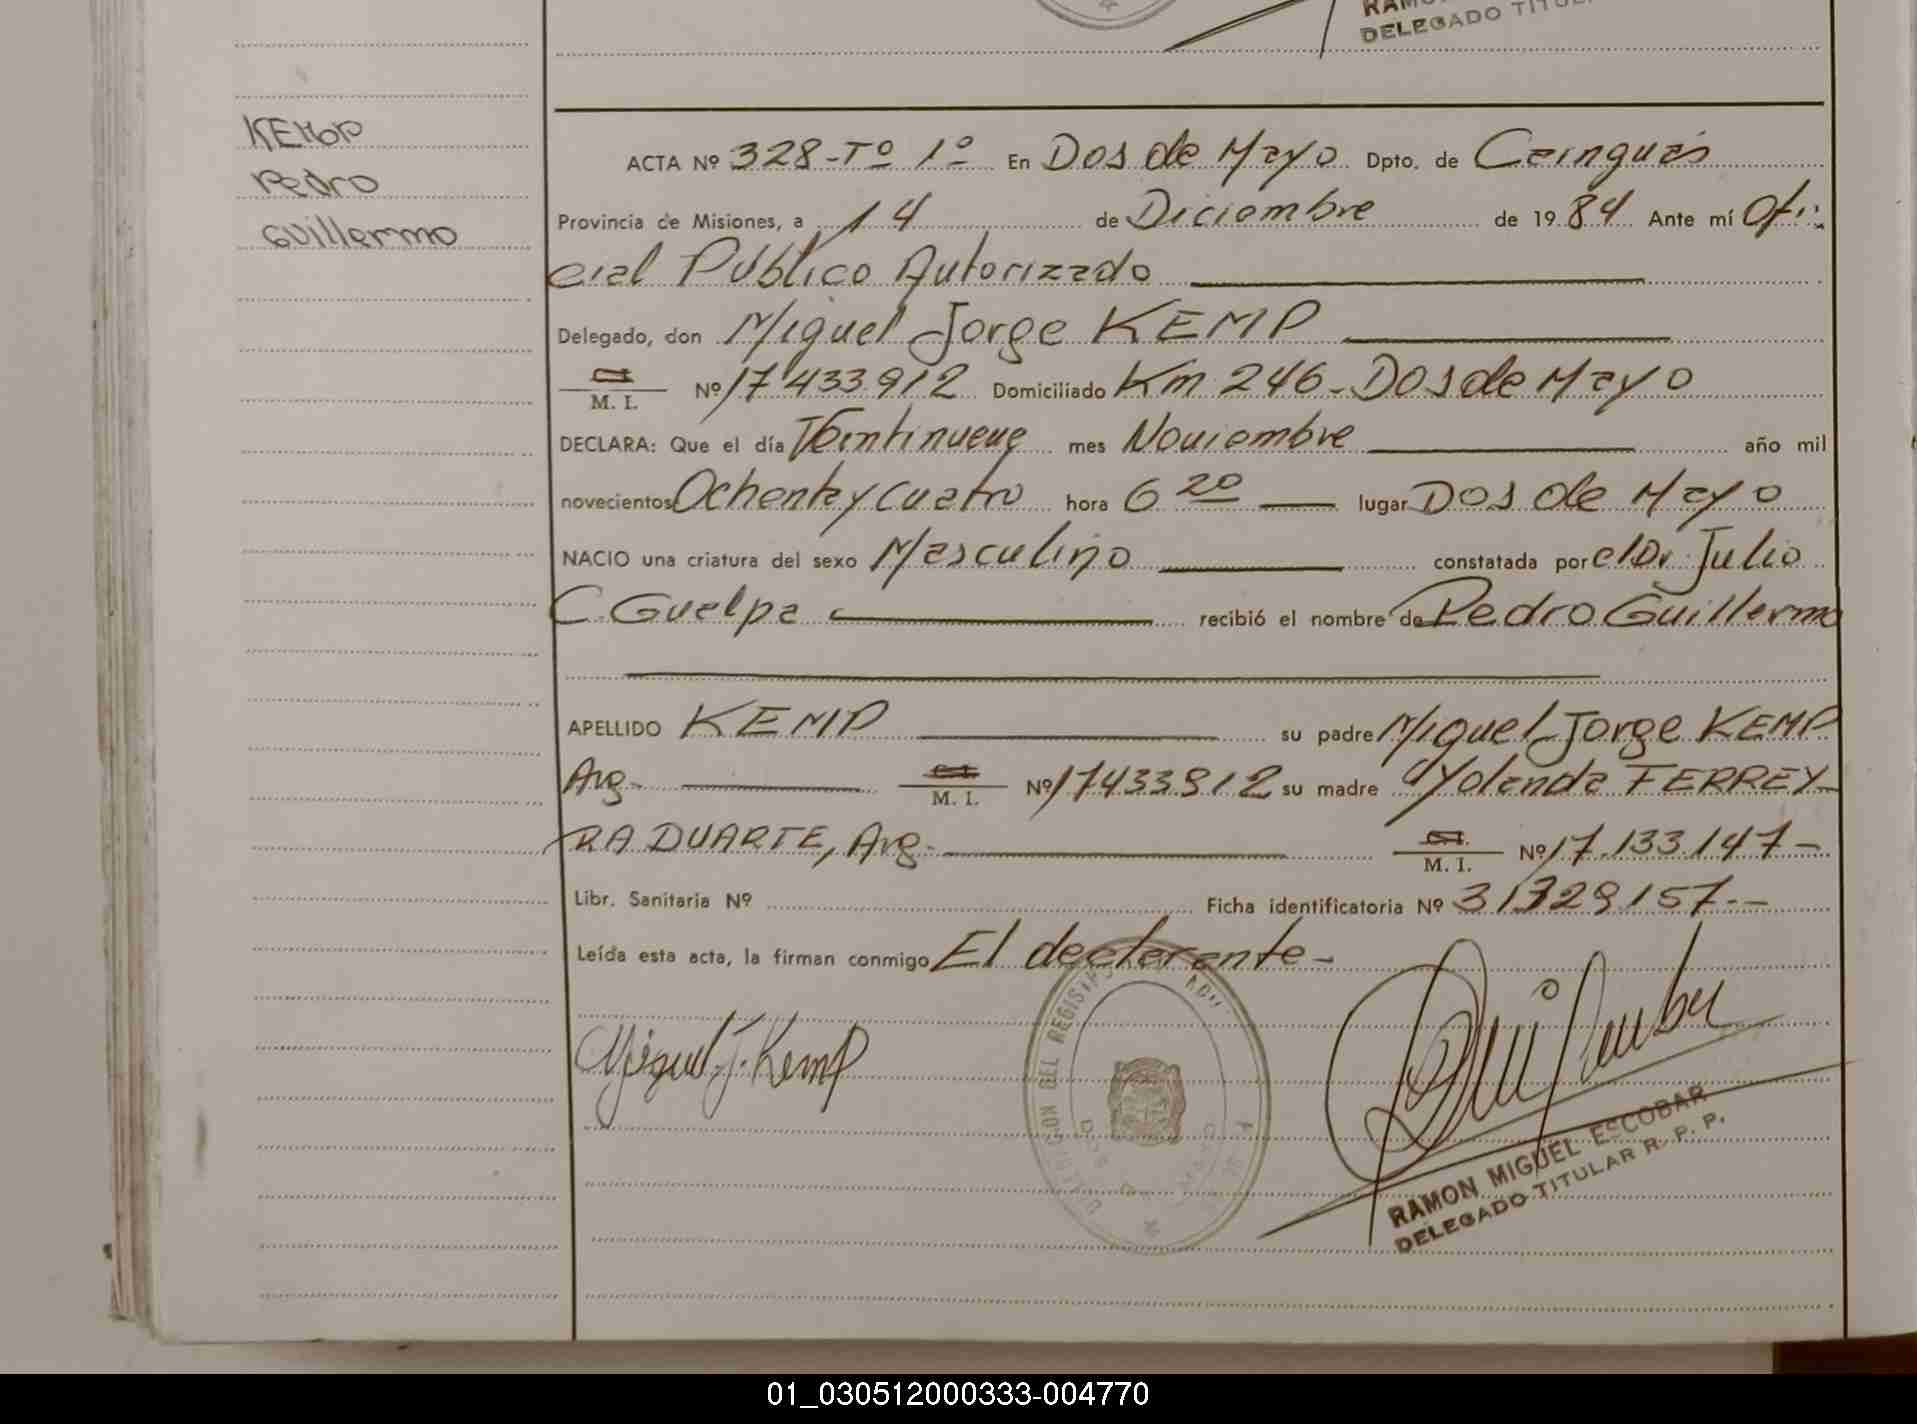 DELEGADO TITUL
KEMP
Pedro
Guillermo
ACTA Nº 328-Tº 1º En Dos de Mayo Dpto. de Cainguás
Provincia de Misiones, a 14 de Diciembre de 1984 Ante mí Ofi-
cial Público Autorizado
Delegado, don Miguel Jorge KEMP
M. I. Nº 17433912 Domiciliado Km 246-Dos de Mayo
DECLARA: Que el día Veintinueve mes Noviembre año mil
novecientos Ochenta y Cuatro hora 6 20 lugar Dos de Mayo
NACIO una criatura del sexo Masculino constatada por el Dr Julio
C. Guelpa recibió el nombre de Pedro Guillermo
APELLIDO KEMP su padre Miguel Jorge KEMP
Arg- M. I. Nº 17433912 su madre Yolanda FERREY-
RA DUARTE, Arg- M. I. Nº 17.133.147-
Libr. Sanitaria Nº Ficha identificatoria Nº 31329157.--
Leída esta acta, la firman conmigo El declarante-
Miguel J. Kemp
RAMON MIGUEL ESCOBAR
DELEGADO TITULAR R. P. P.
01_030512000333-004770